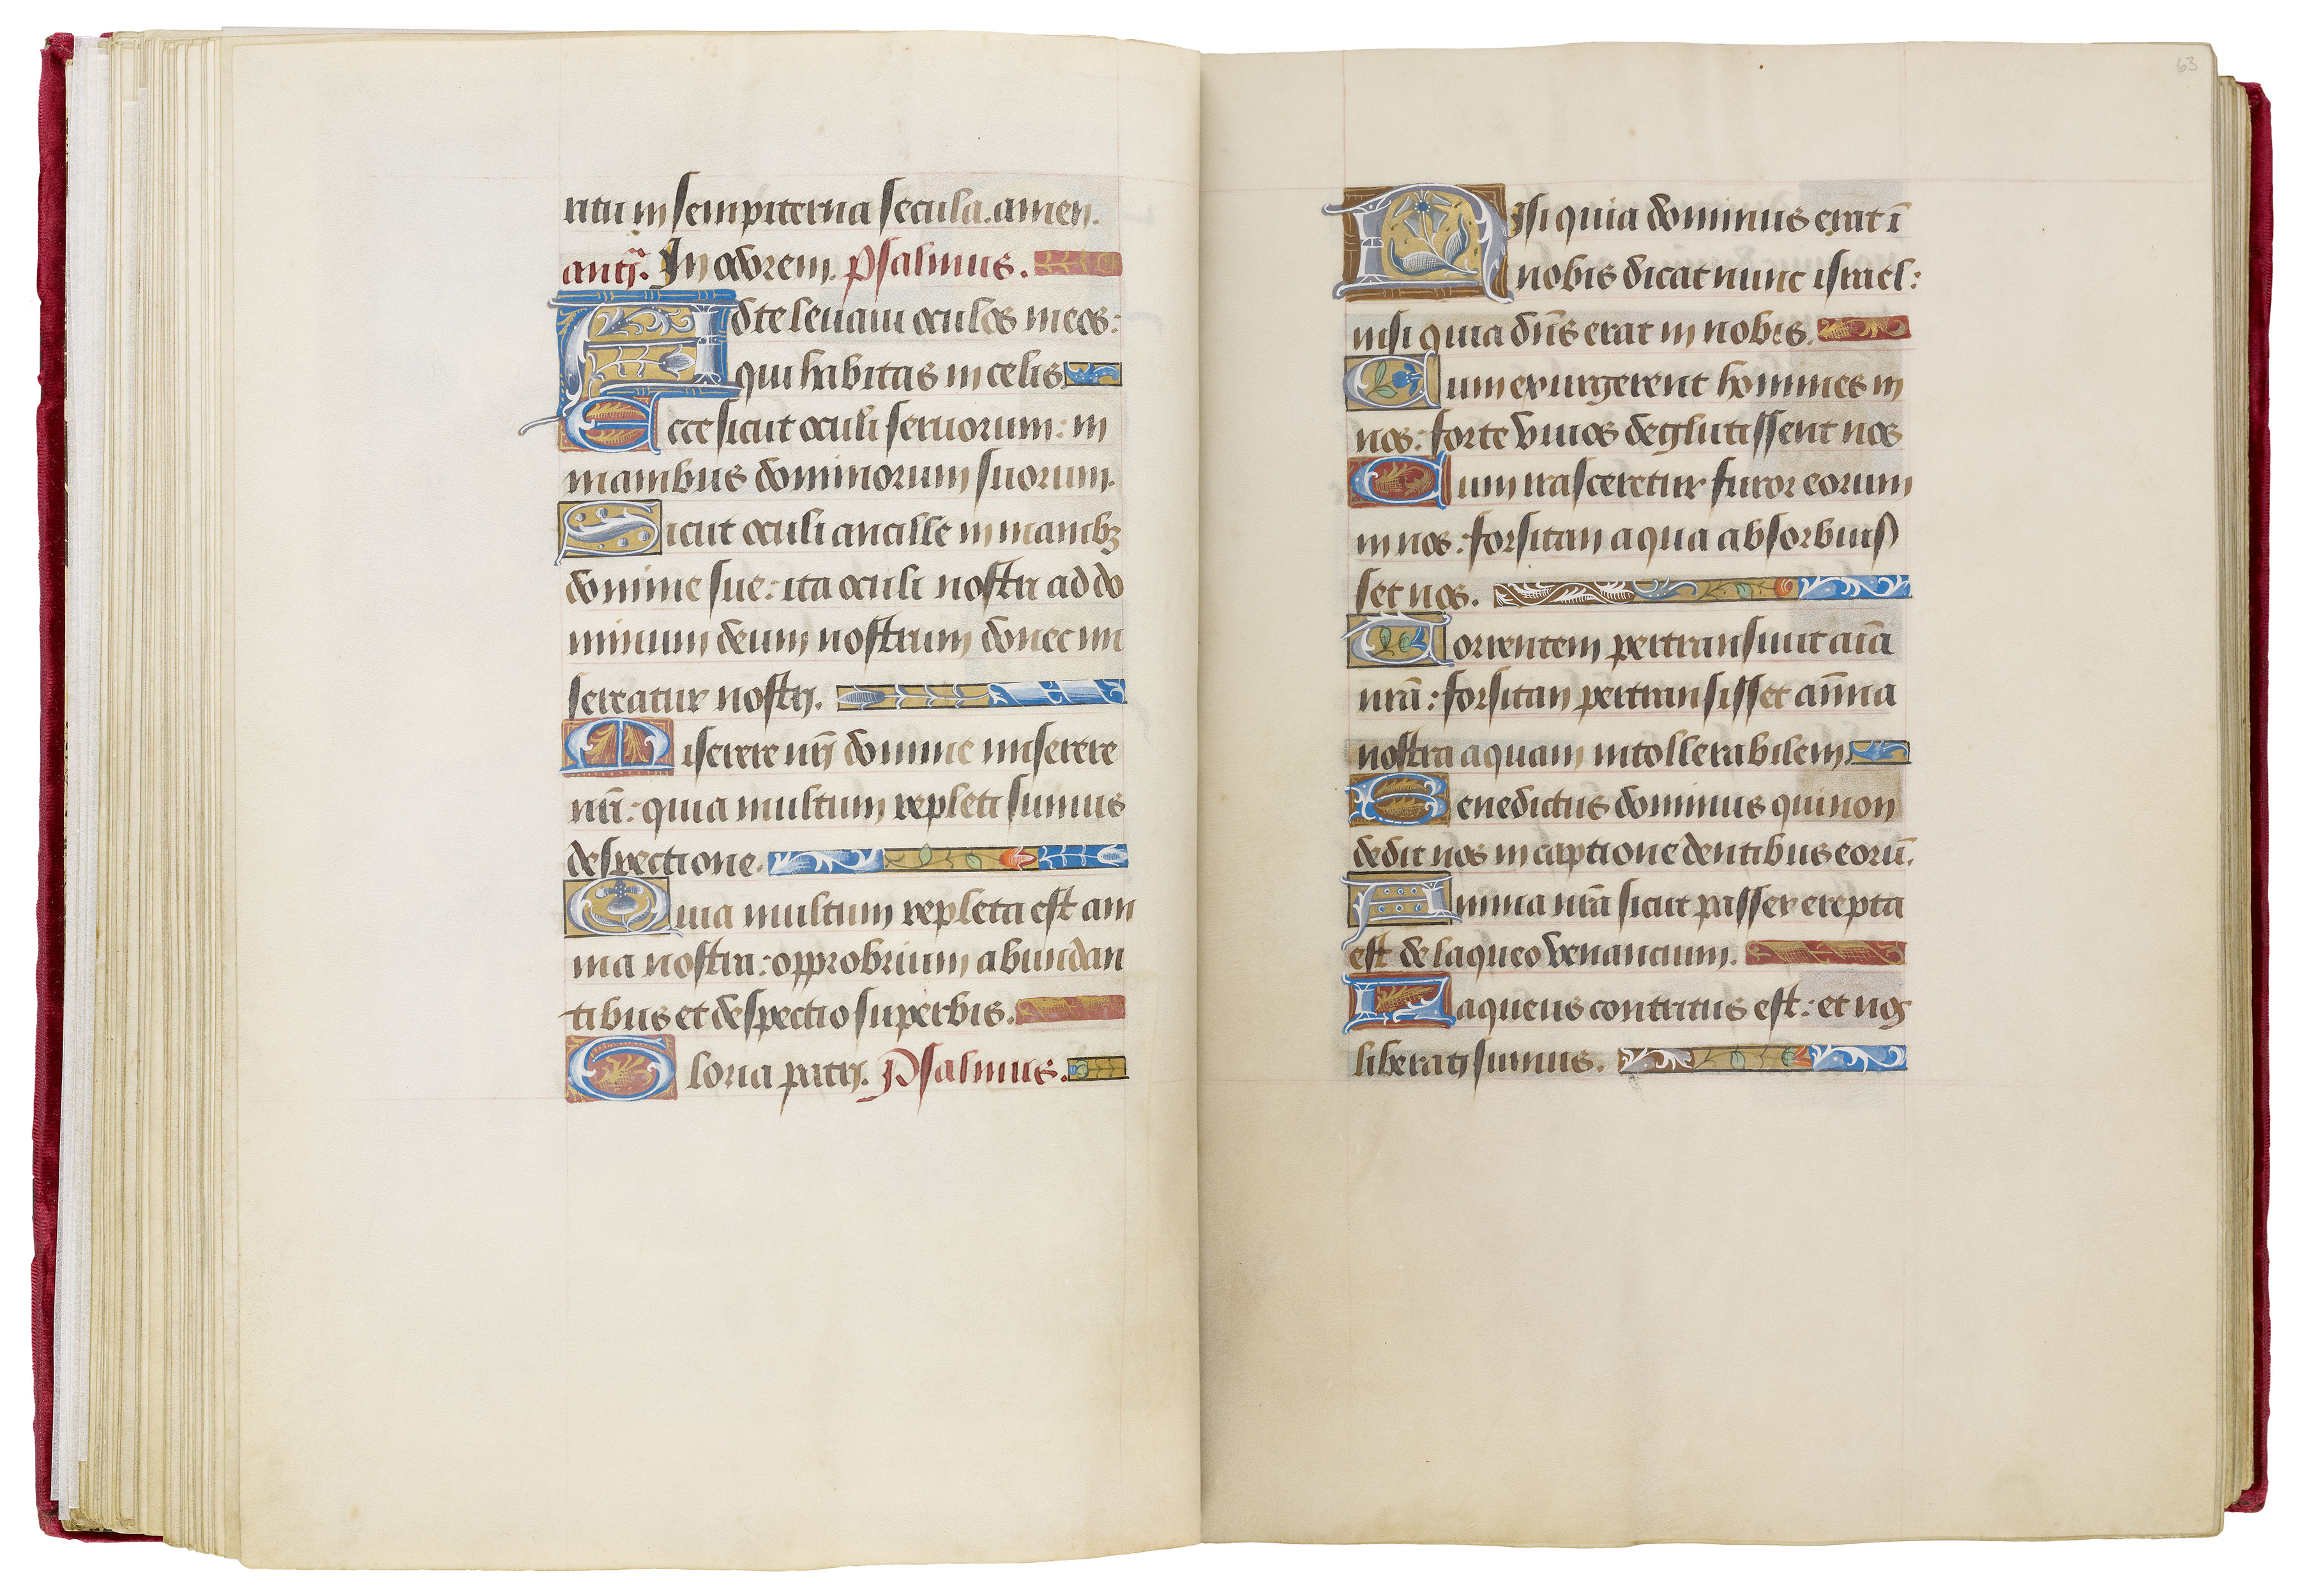 ritu in sempiterna secula. amen.
antī. In odorem. Psalmus.
Ad te levavi oculos meos:
qui habitas in celis.
Ecce sicut oculi servorum: in
manibus dominorum suorum.
Sicut oculi ancille in manibꝫ
domine sue: ita oculi nostri ad do
minum deum nostrum donec mi
sereatur nostri.
Miserere nrī domine miserere
nrī: quia multum repleti sumus
despectione.
Quia multum repleta est ani
ma nostra: opprobrium abundan
tibus et despectio superbis.
Gloria patri. Psalmus.
63
Nisi quia dominus erat ī
nobis dicat nunc israel:
nisi quia dn̄s erat in nobis.
Cum exurgerent homines in
nos: forte vivos deglutissent nos
Cum irasceretur furor eorum
in nos: forsitan aqua absorbuis
set nos.
Torrentem pertransivit aīa
nrā: forsitan pertransisset an̄ma
nostra aquam intollerabilem.
Benedictus dominus qui non
dedit nos in captione dentibus eorū.
Anima nrā sicut passer erepta
est de laqueo venancium.
Laqueus contritus est: et nos
liberati sumus.